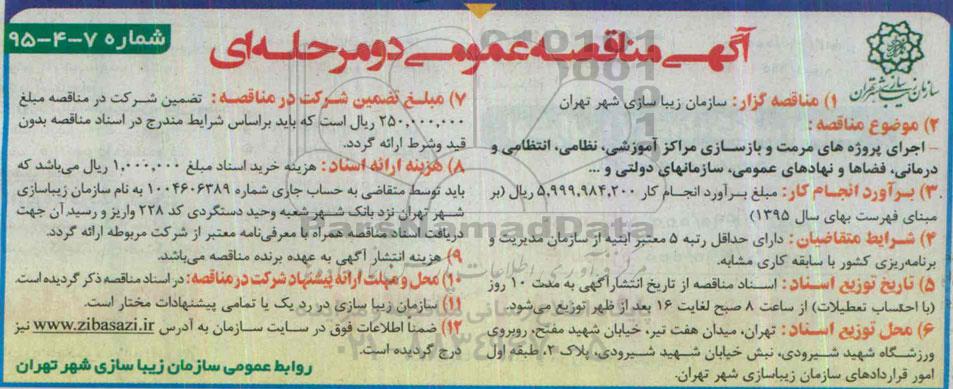 آگهی مناقصه عمومی دو مرحله‌ای
شماره ۷-۴-۹۵
سازمان زیباسازی شهر تهران
۱) مناقصه گزار: سازمان زیبا سازی شهر تهران
۲) موضوع مناقصه:
- اجرای پروژه های مرمت و بازسازی مراکز آموزشی، نظامی، انتظامی و
درمانی، فضاها و نهادهای عمومی، سازمانهای دولتی و ...
۳) برآورد انجام کار: مبلغ برآورد انجام کار ۵,۹۹۹,۹۸۴,۲۰۰ ریال (بر
مبنای فهرست بهای سال ۱۳۹۵)
۴) شرایط متقاضیان: دارای حداقل رتبه ۵ معتبر ابنیه از سازمان مدیریت و
برنامه‌ریزی کشور با سابقه کاری مشابه.
۵) تاریخ توزیع اسناد: اسناد مناقصه از تاریخ انتشار آگهی به مدت ۱۰ روز
(با احتساب تعطیلات) از ساعت ۸ صبح لغایت ۱۶ بعد از ظهر توزیع می‌شود.
۶) محل توزیع اسناد: تهران، میدان هفت تیر، خیابان شهید مفتح، روبروی
ورزشگاه شهید شیرودی، نبش خیابان شهید شیرودی، پلاک ۲، طبقه اول
امور قراردادهای سازمان زیباسازی شهر تهران.
۷) مبلغ تضمین شرکت در مناقصه: تضمین شرکت در مناقصه مبلغ
۲۵۰,۰۰۰,۰۰۰ ریال است که باید براساس شرایط مندرج در اسناد مناقصه بدون
قید وشرط ارائه گردد.
۸) هزینه ارائه اسناد: هزینه خرید اسناد مبلغ ۱,۰۰۰,۰۰۰ ریال می‌باشد که
باید توسط متقاضی به حساب جاری شماره ۱۰۰۴۶۰۶۳۸۹ به نام سازمان زیباسازی
شهر تهران نزد بانک شهر شعبه وحید دستگردی کد ۲۲۸ واریز و رسید آن جهت
دریافت اسناد مناقصه همراه با معرفی‌نامه معتبر از شرکت مربوطه ارائه گردد.
۹) هزینه انتشار آگهی به عهده برنده مناقصه می‌باشد.
۱۰) محل و مهلت ارائه پیشنهاد شرکت در مناقصه: در اسناد مناقصه ذکر گردیده است.
۱۱) سازمان زیبا سازی در رد یک یا تمامی پیشنهادات مختار است.
۱۲) ضمنا اطلاعات فوق در سایت سازمان به آدرس www.zibasazi.ir نیز
درج گردیده است.
روابط عمومی سازمان زیبا سازی شهر تهران